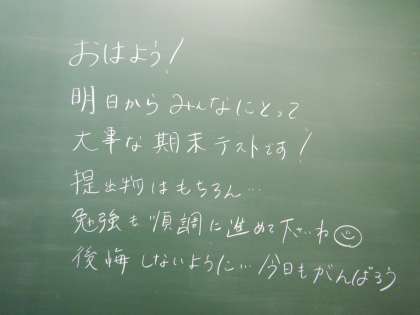 おはよう!
明日から みんなにとって
大事な 期末 テストです!
提出物はもちろん…
勉強も順調に進めて下さいね
後悔しないように… 今日もがんばろう